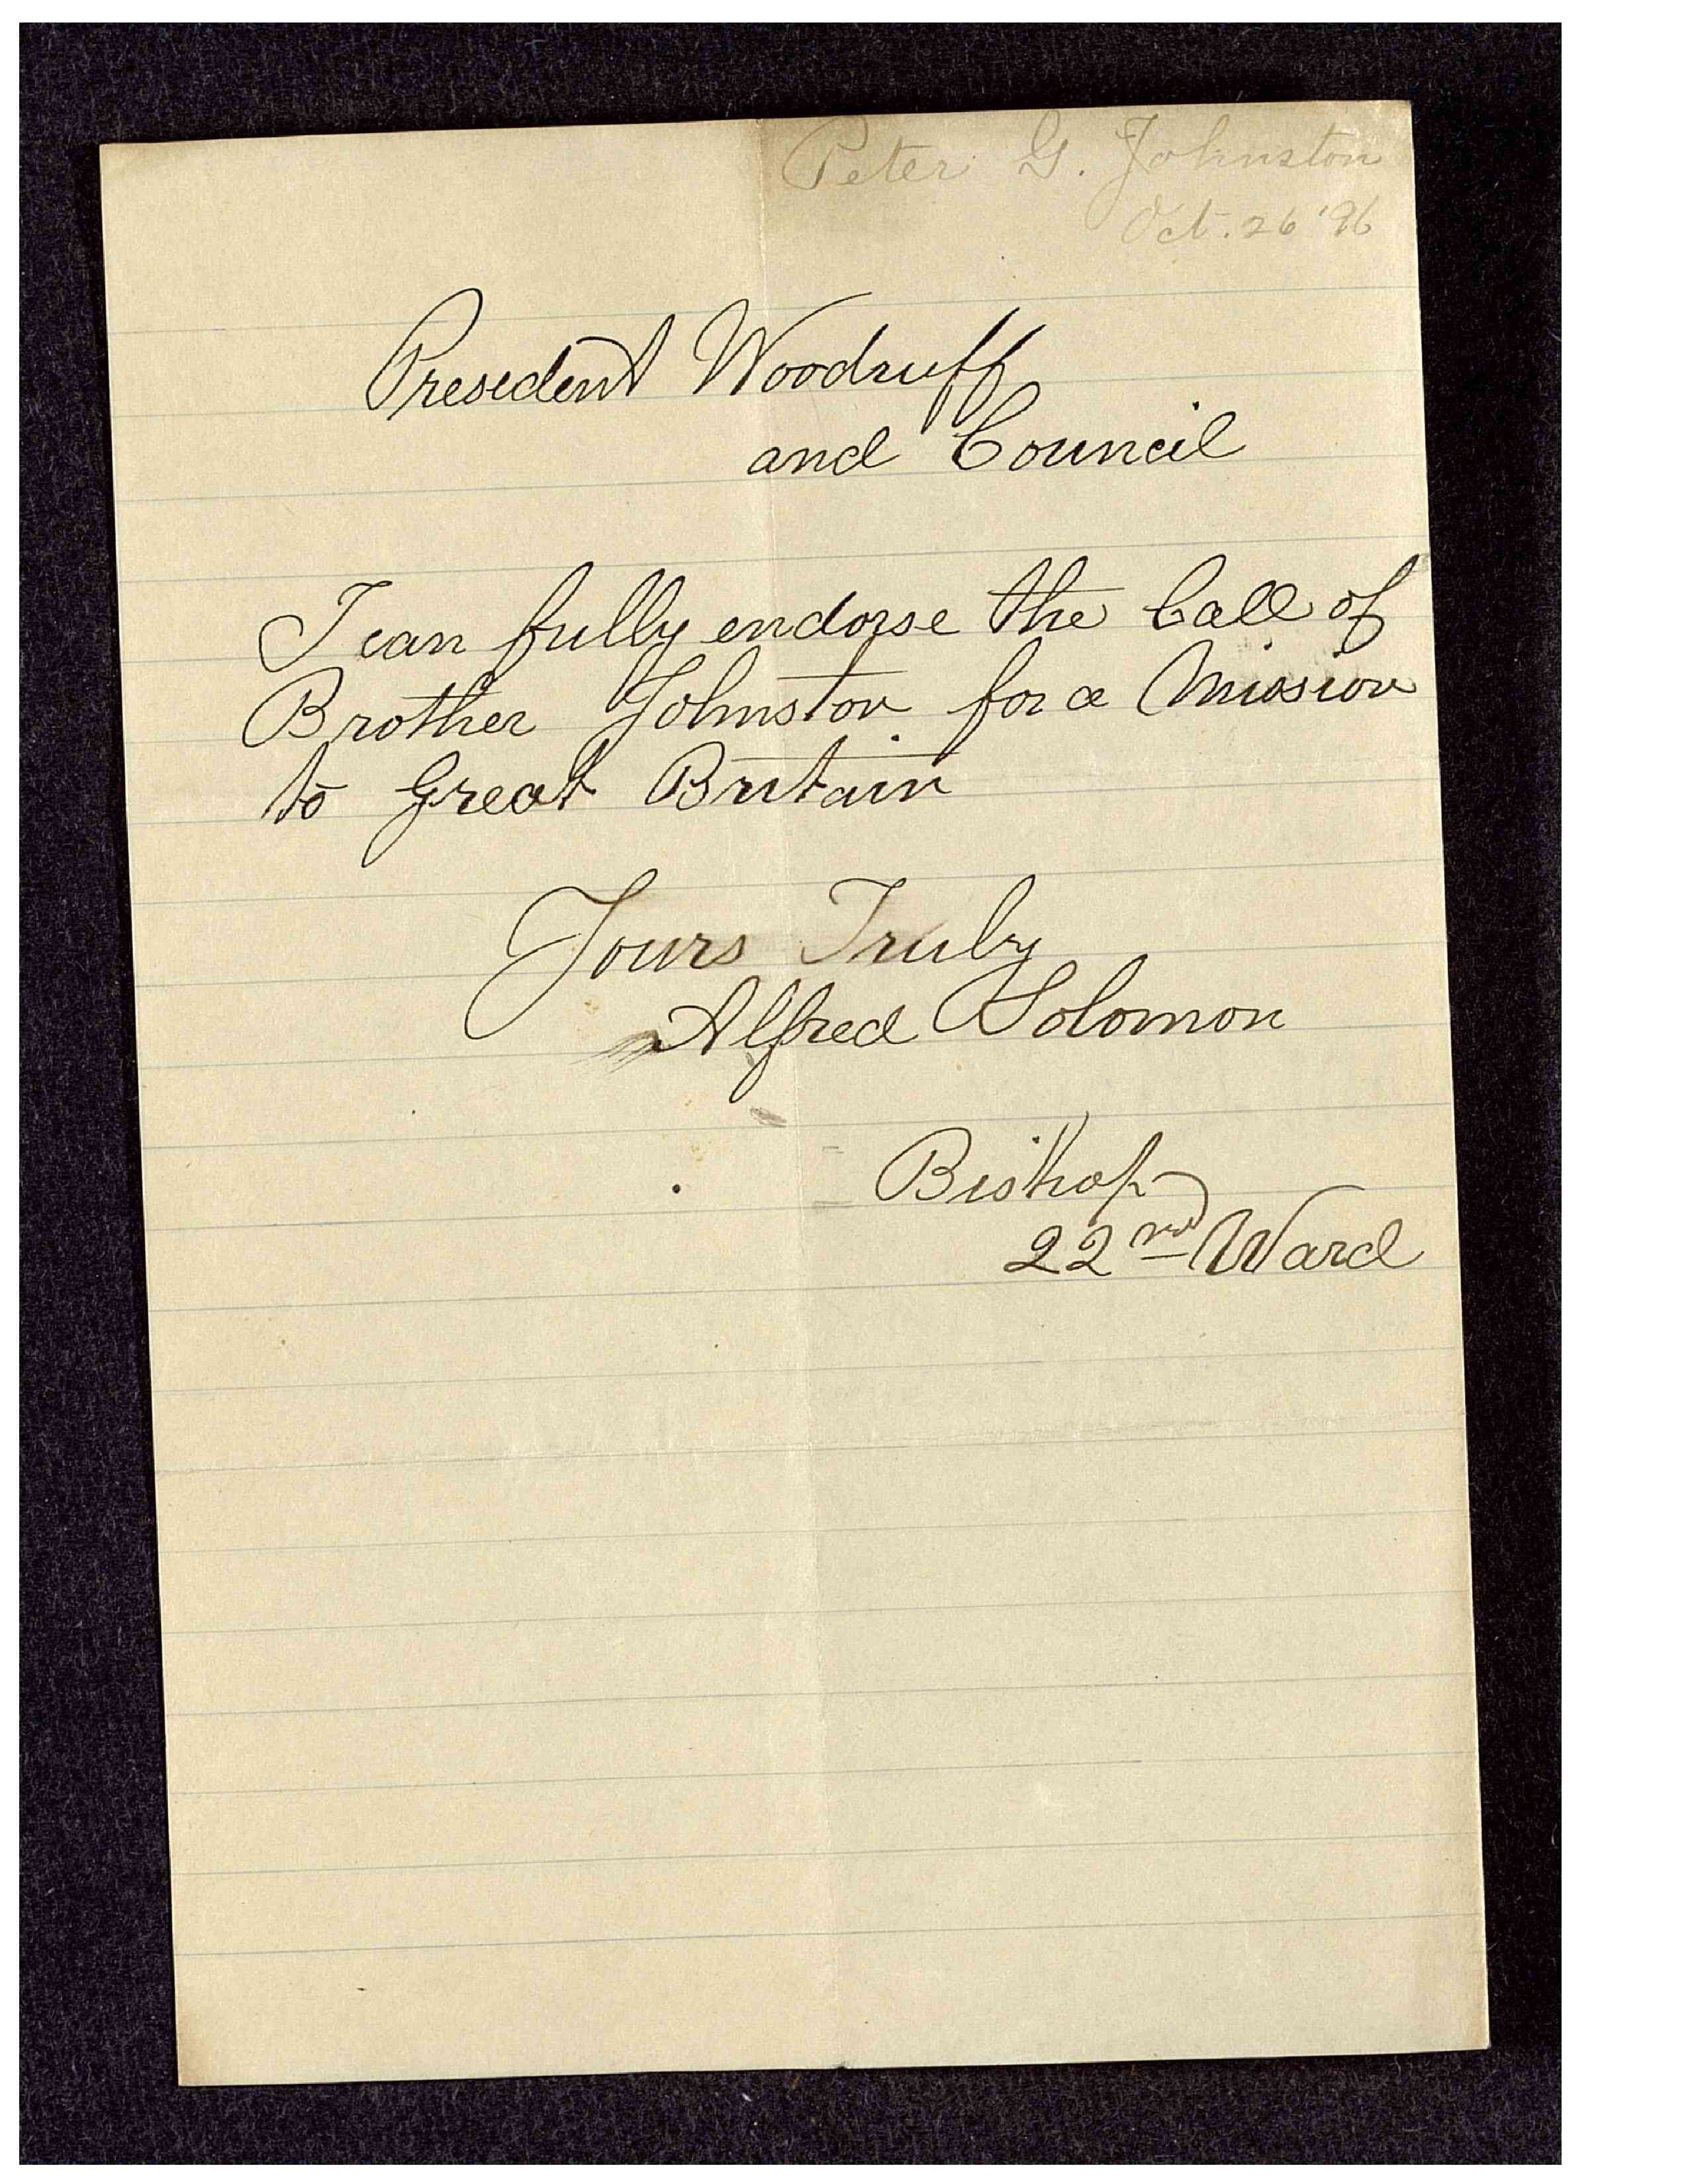 Peter G. Johnston
Oct. 26 '96
President Woodruff
and Council
I can fully endorse the Call of
Brother Johnston for a Mission
to Great Britain
Yours Truly
Alfred Solomon
Bishop
22nd Ward